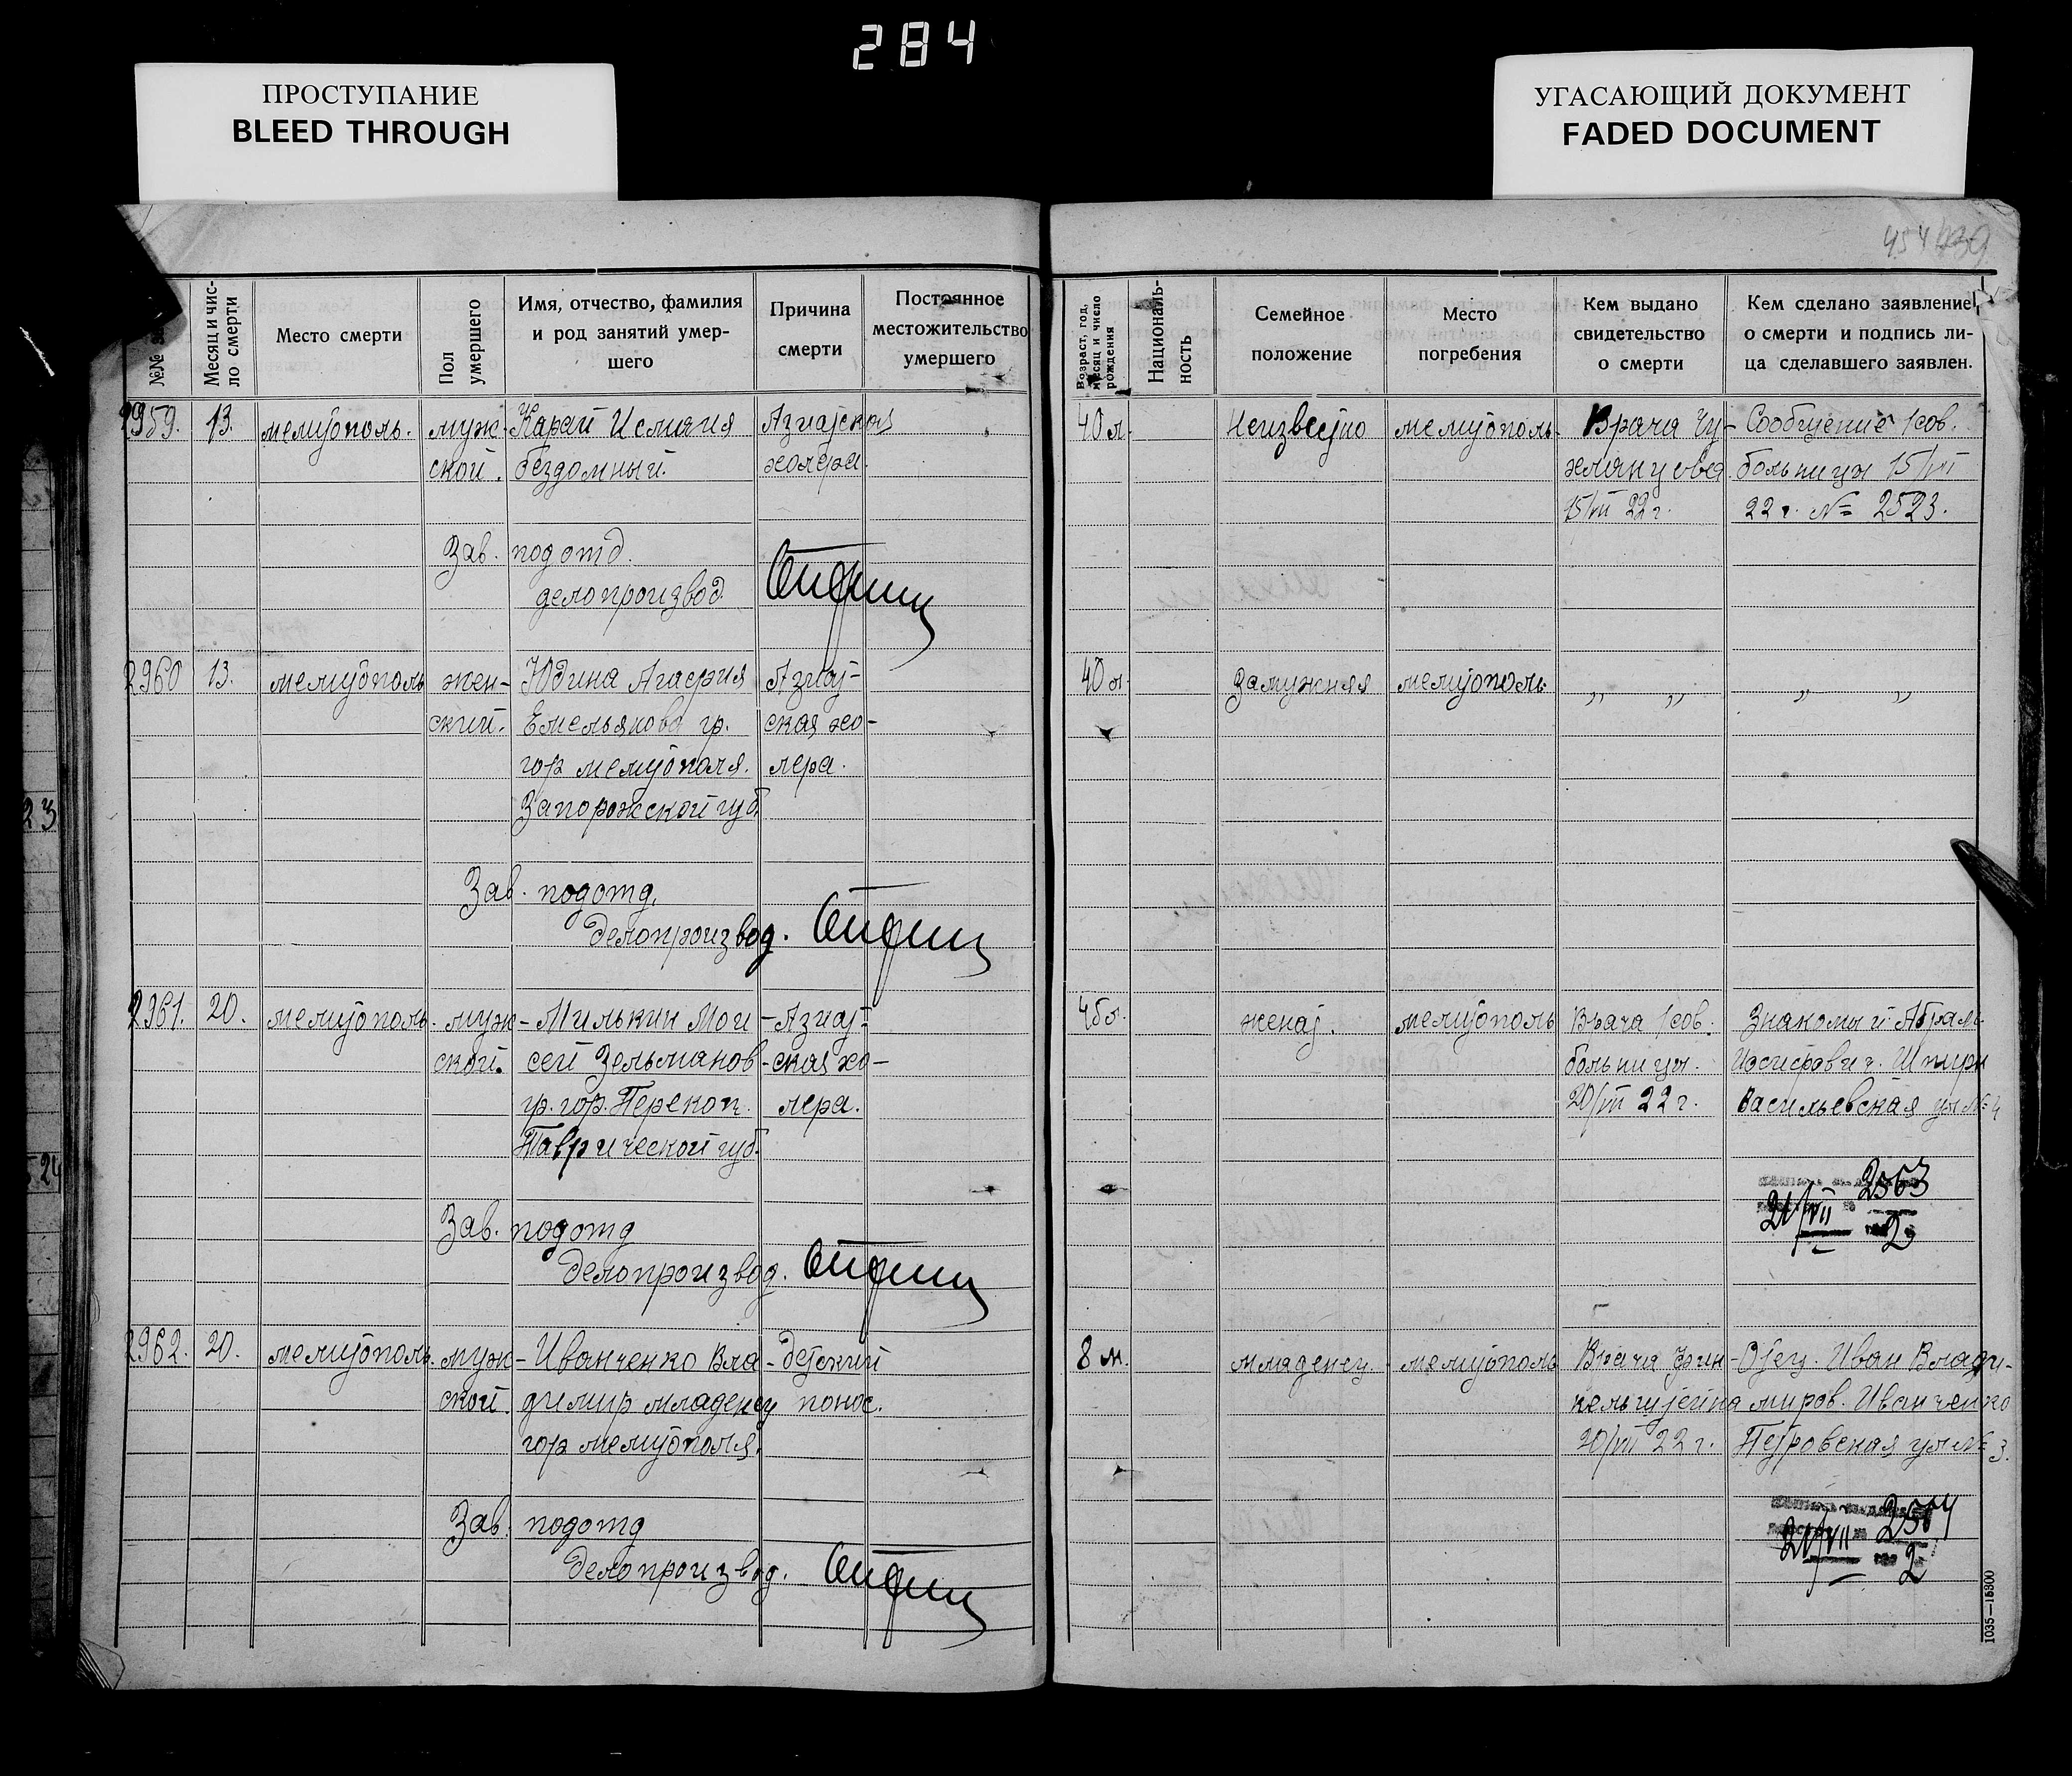 284
ПРОСТУПАНИЕ
BLEED THROUGH
УГАСАЮЩИЙ ДОКУМЕНТ
FADED DOCUMENT
454
№№
Месяц и чис-
ло смерти
Место смерти
Пол
умершего
Имя, отчество, фамилия
и род занятий умер-
шего
Причина
смерти
Постоянное
местожительство
умершего
Возраст, год,
месяц и число
рождения
Националь-
ность
Семейное
положение
Место
погребения
Кем выдано
свидетельство
о смерти
Кем сделано заявление
о смерти и подпись ли-
ца сделавшего заявлен.
2959. 13. мелитополь. муж- Карай Азиатская 40 л. Неизвестно мелитополь. Врача Чу- Сообщение 1 сов.
ской. бездомный. холера. больницы 15/VII
15/VII 22 г. 22 г. № 2523.
Зав. подотд.
делопроизвод.
2960 13. мелитополь жен- Юдина Агафия Азиат- 40 л. Замужняя мелитополь „ „ „ „
ский. Емельянова гр. ская хо-
гор мелитополя. лера.
Запорожской губ.
Зав. подотд.
делопроизвод.
2961. 20. мелитополь. муж- Милькин Мои- Азиат- женат. мелитополь Врача 1 сов. Знакомый Абрам
ской. сей Зельманов- ская хо- больницы. Иосифович.
гр. гор. Перекоп. лера. 20/VII 22 г. Васильевская ул № 4
Таврической губ.
2563
21/VII 2
Зав. подотд
делопроизвод.
2962. 20. мелитополь. муж- Иванченко Вла- детский 8 м. младенец. мелитополь Врача Фин- Отец. Иван Влади-
ской. димир младенец понос. кельштейна миров. Иванченко
гор мелитополя. 20/VII 22 г. Петровская ул № 3.
2564
21/VII 2
Зав. подотд
делопроизвод.
1035—15300